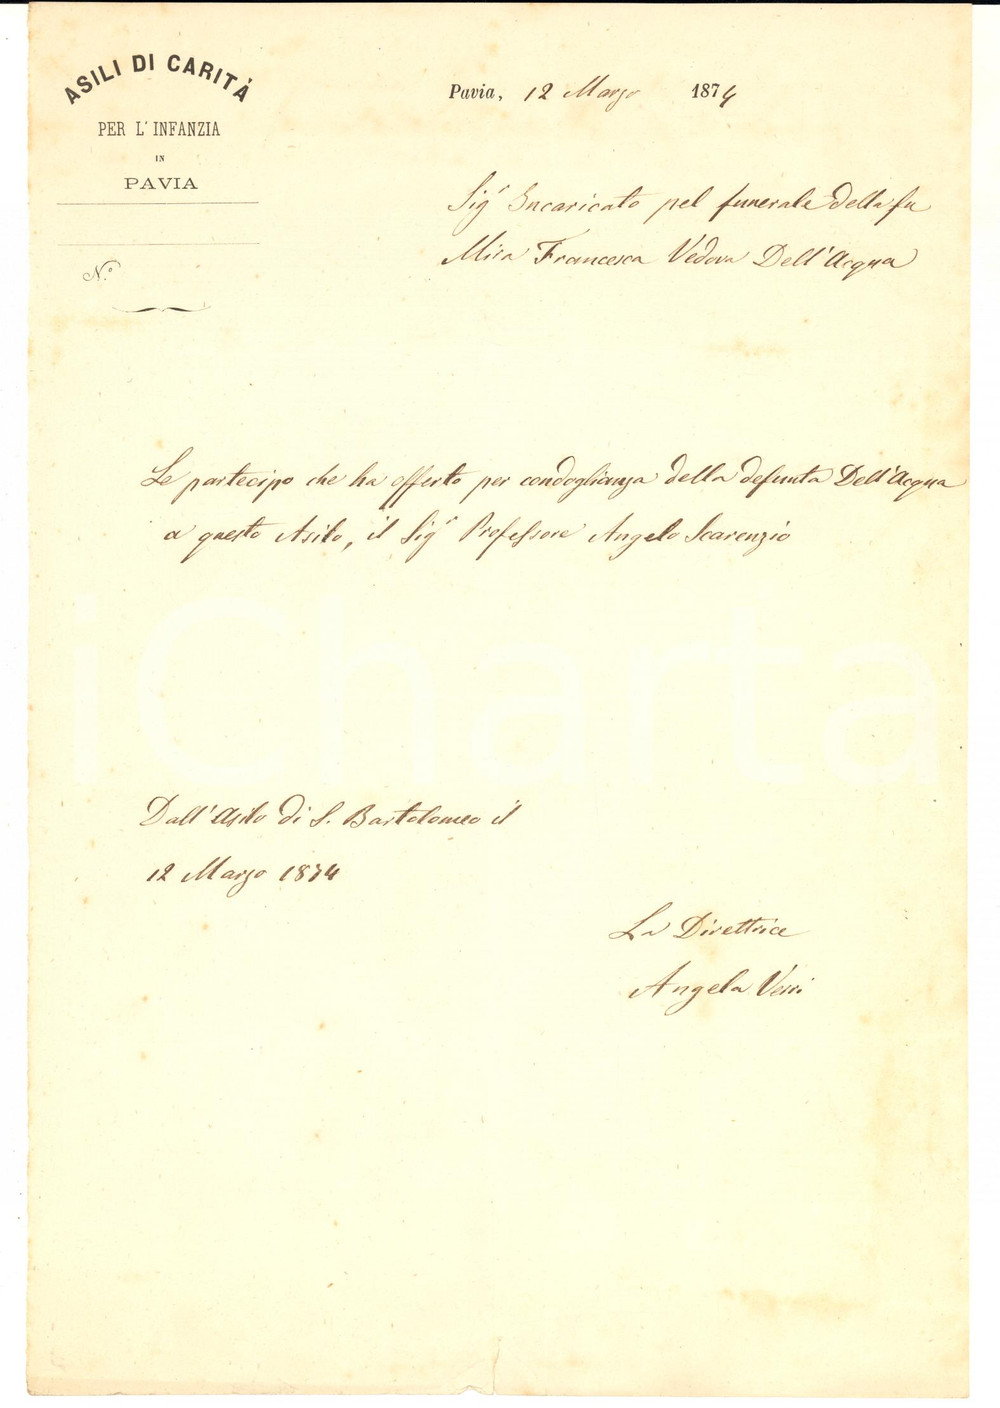 ASILI DI CARITÀ
PER L'INFANZIA
IN
PAVIA
N.º
Pavia, 12 Marzo 1874
Sigʳ Incaricato pel funerale della fu
Mira Francesca Vedova Dell'Acqua
Le partecipo che ha offerto per condoglianza della defunta Dell'Acqua
a questo Asilo, il Sigʳ Professore Angelo Scarenzio
iCharta
Dall'Asilo di S. Bartolomeo il
12 Marzo 1874
La Direttrice
Angela Verri